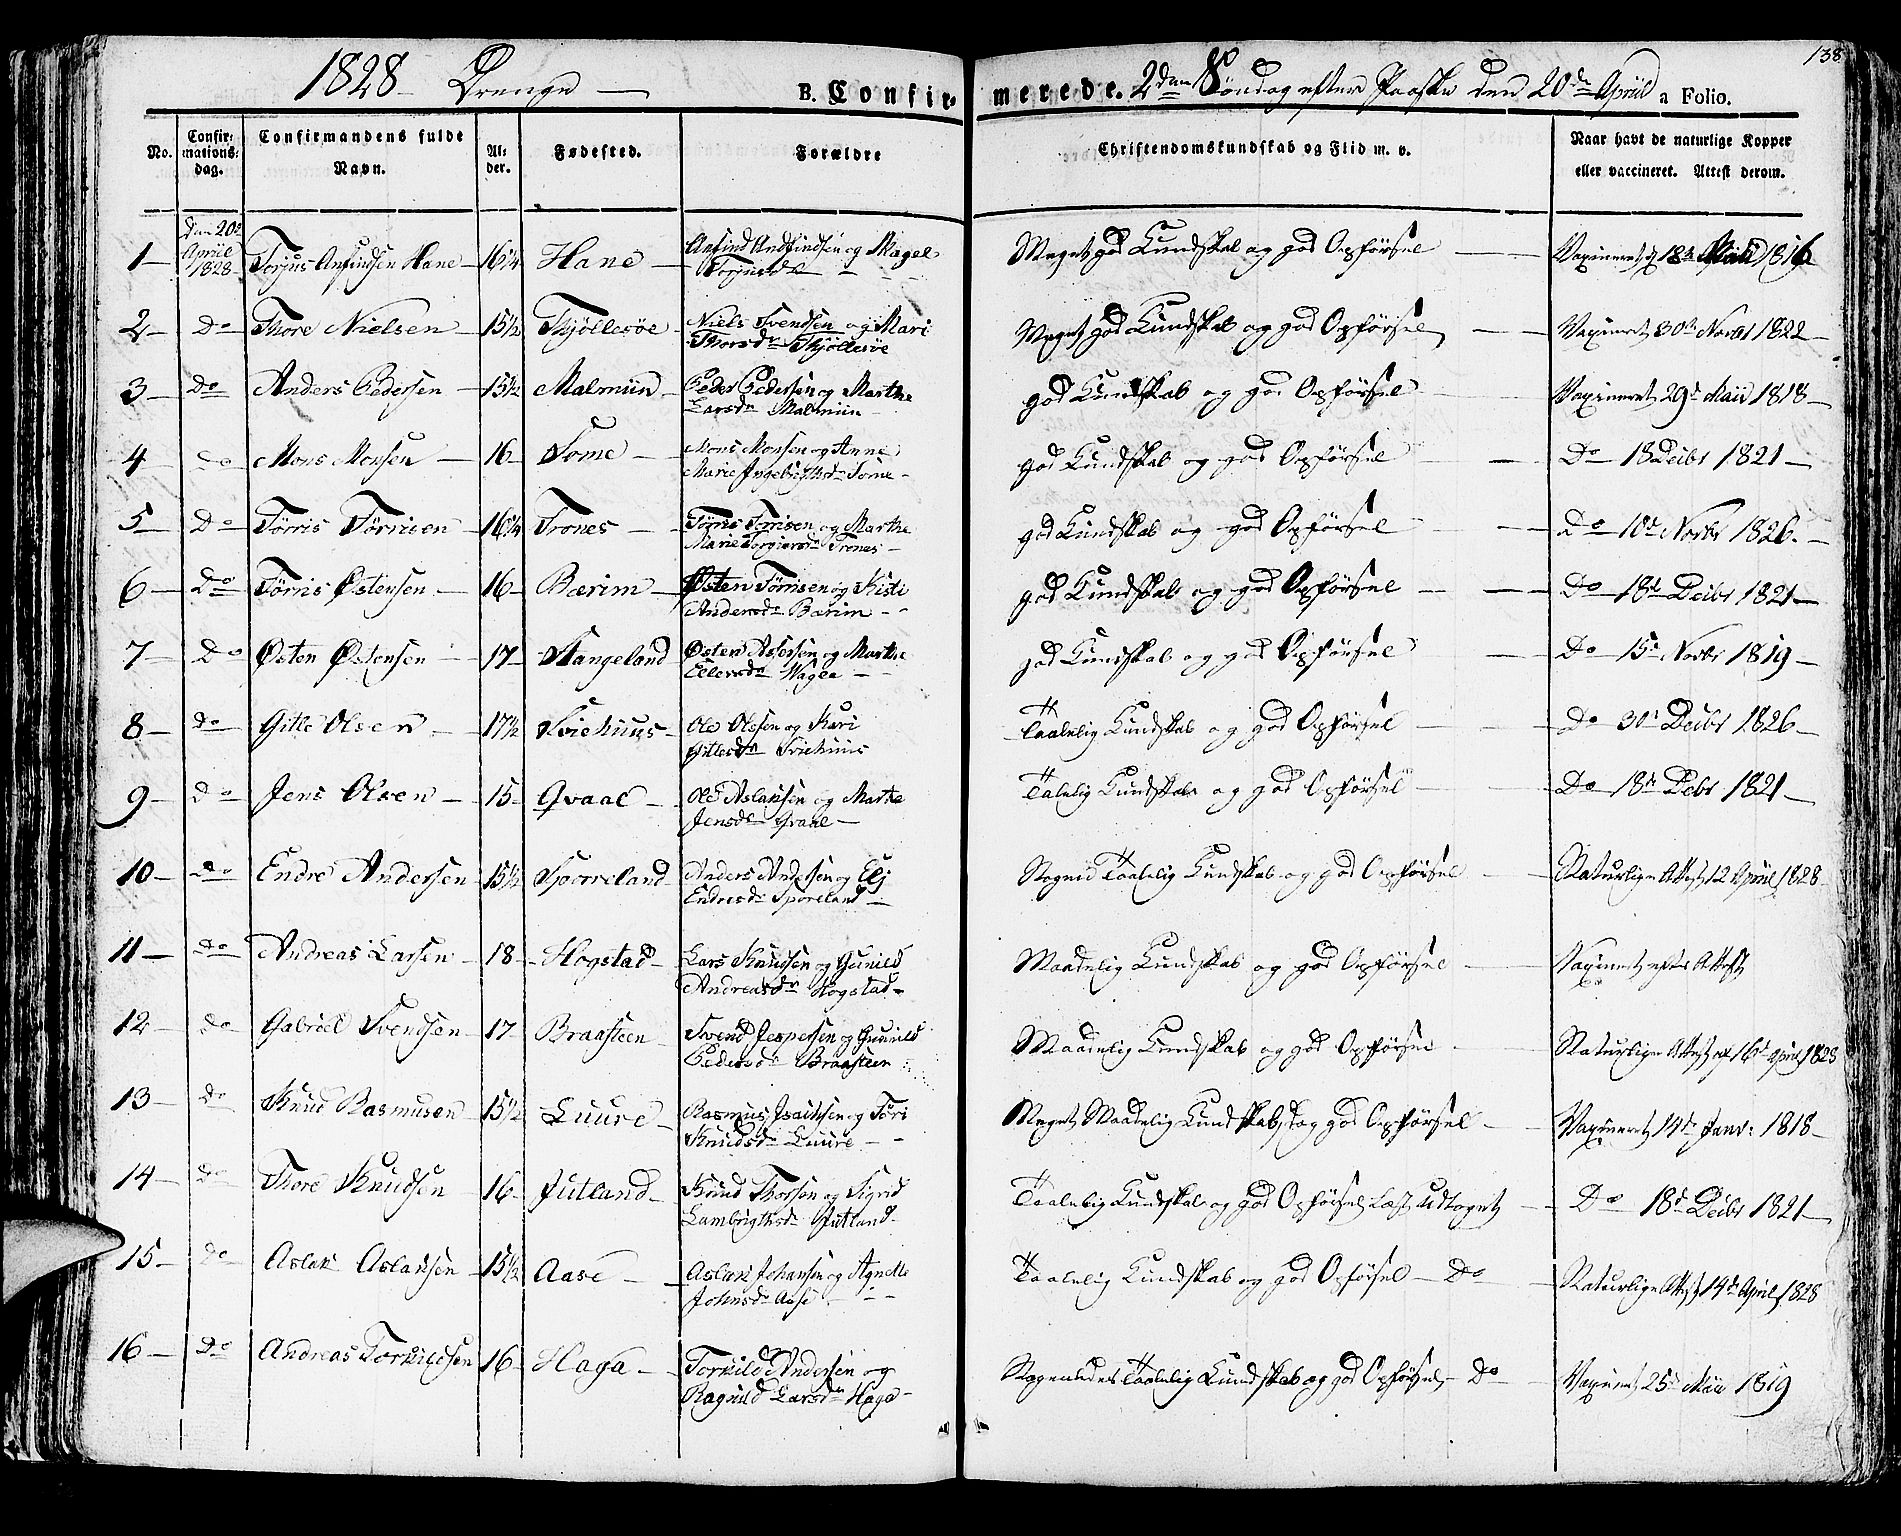 138
1828 Drenge — B. Confirmerede. 2den Søndag efter Paaske den 20de April a Folio.
No. Confirmations-dag. Confirmandens fulde Navn. Alder. Fødested. Forældre Christendomskundskab og Flid m. v. Naar havt de naturlige Kopper eller vaccineret. Attest derom.
1 — Den 20de Aprill 1828 — Torjus Anfindsen Hane — 16 1/4 Hane — Anfind Andfindsen og Magel Torjusdr — Meget god Kundskab og god Opførsel — Vaxineret d 18de Maii 1816
2 — Do — Thore Nielsen — 15 1/2 Thjøllesøe — Niels Svendsen og Mari Thorsdr Thjøllesøe Meget god Kundskab og god Opførsel — Vaxineret 30te Novbr 1822 —
3 — Do — Anders Pedersen — 15 1/2 Malmiin — Peder Pedersen og Marthe Larsdr Malmiin — god Kundskab og god Opførsel — Vaxineret 29d Maii 1818 —
4 — Do — Mons Monsen — 16 — Some — Mons Monsen og Anne Marie Ingebrigthsdr Some — god Kundskab og god Opførsel — Do — 18 Deibr 1821 —
5 — Do — Tørris Tørrisen — 16 1/4 Trones — Tørris Tørrisen og Marthe Marie Torgiersdr Trones — god Kundskab og god Opførsel — Do — 10d Novbr 1826. —
6 — Do — Tørris Østensen — 16 — Bærim — Østen Tørrisen og Kisti Andersdr Bærim — god Kundskab og god Opførsel — Do — 18d Deibr 1821 —
7 — Do — Østen Østensen — 17 — Stangeland Østen Asersen og Marthe Ellensdr Wagle — god Kundskab og god Opførsel — Do — 15d Novbr 1819 —
8 — Do — Gitle Olsen — 17 1/2 Sviehuus — Ole Olssen og Kari Gitlesdr Sviehuus Taalelig Kundskab og god Opførsel — Do 30d Deibr 1826 —
9 — Do — Jens Olsen — 15 — Qvaal — Ole Aslaksen og Marthe Jensdr Qvaal — Talelig Kundskab og god Opførsel — Do — 18de Debr 1821 —
10 — Do — Endre Andersen 15 1/2 Sporreland — Anders Andersen og Elj Endresdr Sporeland — Nogenl Taalelig Kundskab og god Opførsel — Naturlige Attest 12 Aprill 1828 —
11 — Do — Andreas Larsen — 18 — Hogstad — Lars Knudsen og Gunild Andreasdr Hogstad — Maadelig Kundskab og god Opførsel — Vaxineret efter Attest
12 — Do — Gabriel Svendsen — 17 — Braasteen — Svend Jespersen og Gunild Pedersdr Braasteen Maadelig Kundskab og god Opførsel — Naturlige Attest af 16d April 1828
13 — Do — Knud Rasmusen 15 1/2 Luure — Rasmus Isachsen og Tøri Knudsdr Luure — Meget Maadelig Kundskab og god Opførsel — Vaxineret 14de Janv: 1818 —
14 — Do — Thore Knudsen 16 — Jutland — Knud Thorsen og Sigrid Lambrigthsdr Jutland — Taalelig Kundskab og god Opførsel, Læst Udtoget — Do 18d Deibr 1821 —
15 — Do — Aslak Aslaksen — 15 1/2 Aase — Aslak Johansen og Agnethe Johnsdr Aase — Taalelig Kundskab og god Opførsel — Do — Naturlige Attest 14de April 1828
16 — Do — Andreas Torkildsen 16 — Haga — Torkild Andersen og Ragnild Larsdr Haga — Nogenledes Taalelig Kundskab og god Opførsel — Do — Vaxineret 25d Maii 1819